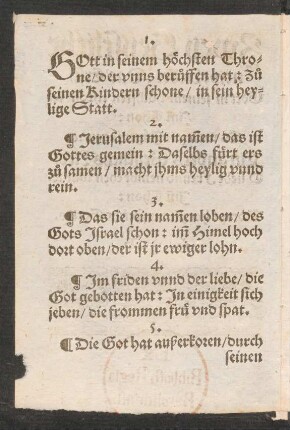 1.
GOtt in seinem höchsten Thro-
ne/ der vnns berůffen hat: Zů
seinen Kindern schone/ in sein hey-
lige Statt.
2.
¶ Jerusalem mit namen/ das ist
Gottes gemein: Daselbs fürt ers
zů samen/ macht jhms heylig vnnd
rein.
3.
¶ Das sie sein namẽ loben/ des
Gots Israel schon: im̃ Himel hoch
dort oben/ der ist jr ewiger lohn.
4.
¶ Im friden vnnd der liebe/ die
Got gebotten hat: In einigkeit sich
jeben/ die frommen frů vnd spat.
5.
¶ Die Got hat außerkoren/ durch
seinen